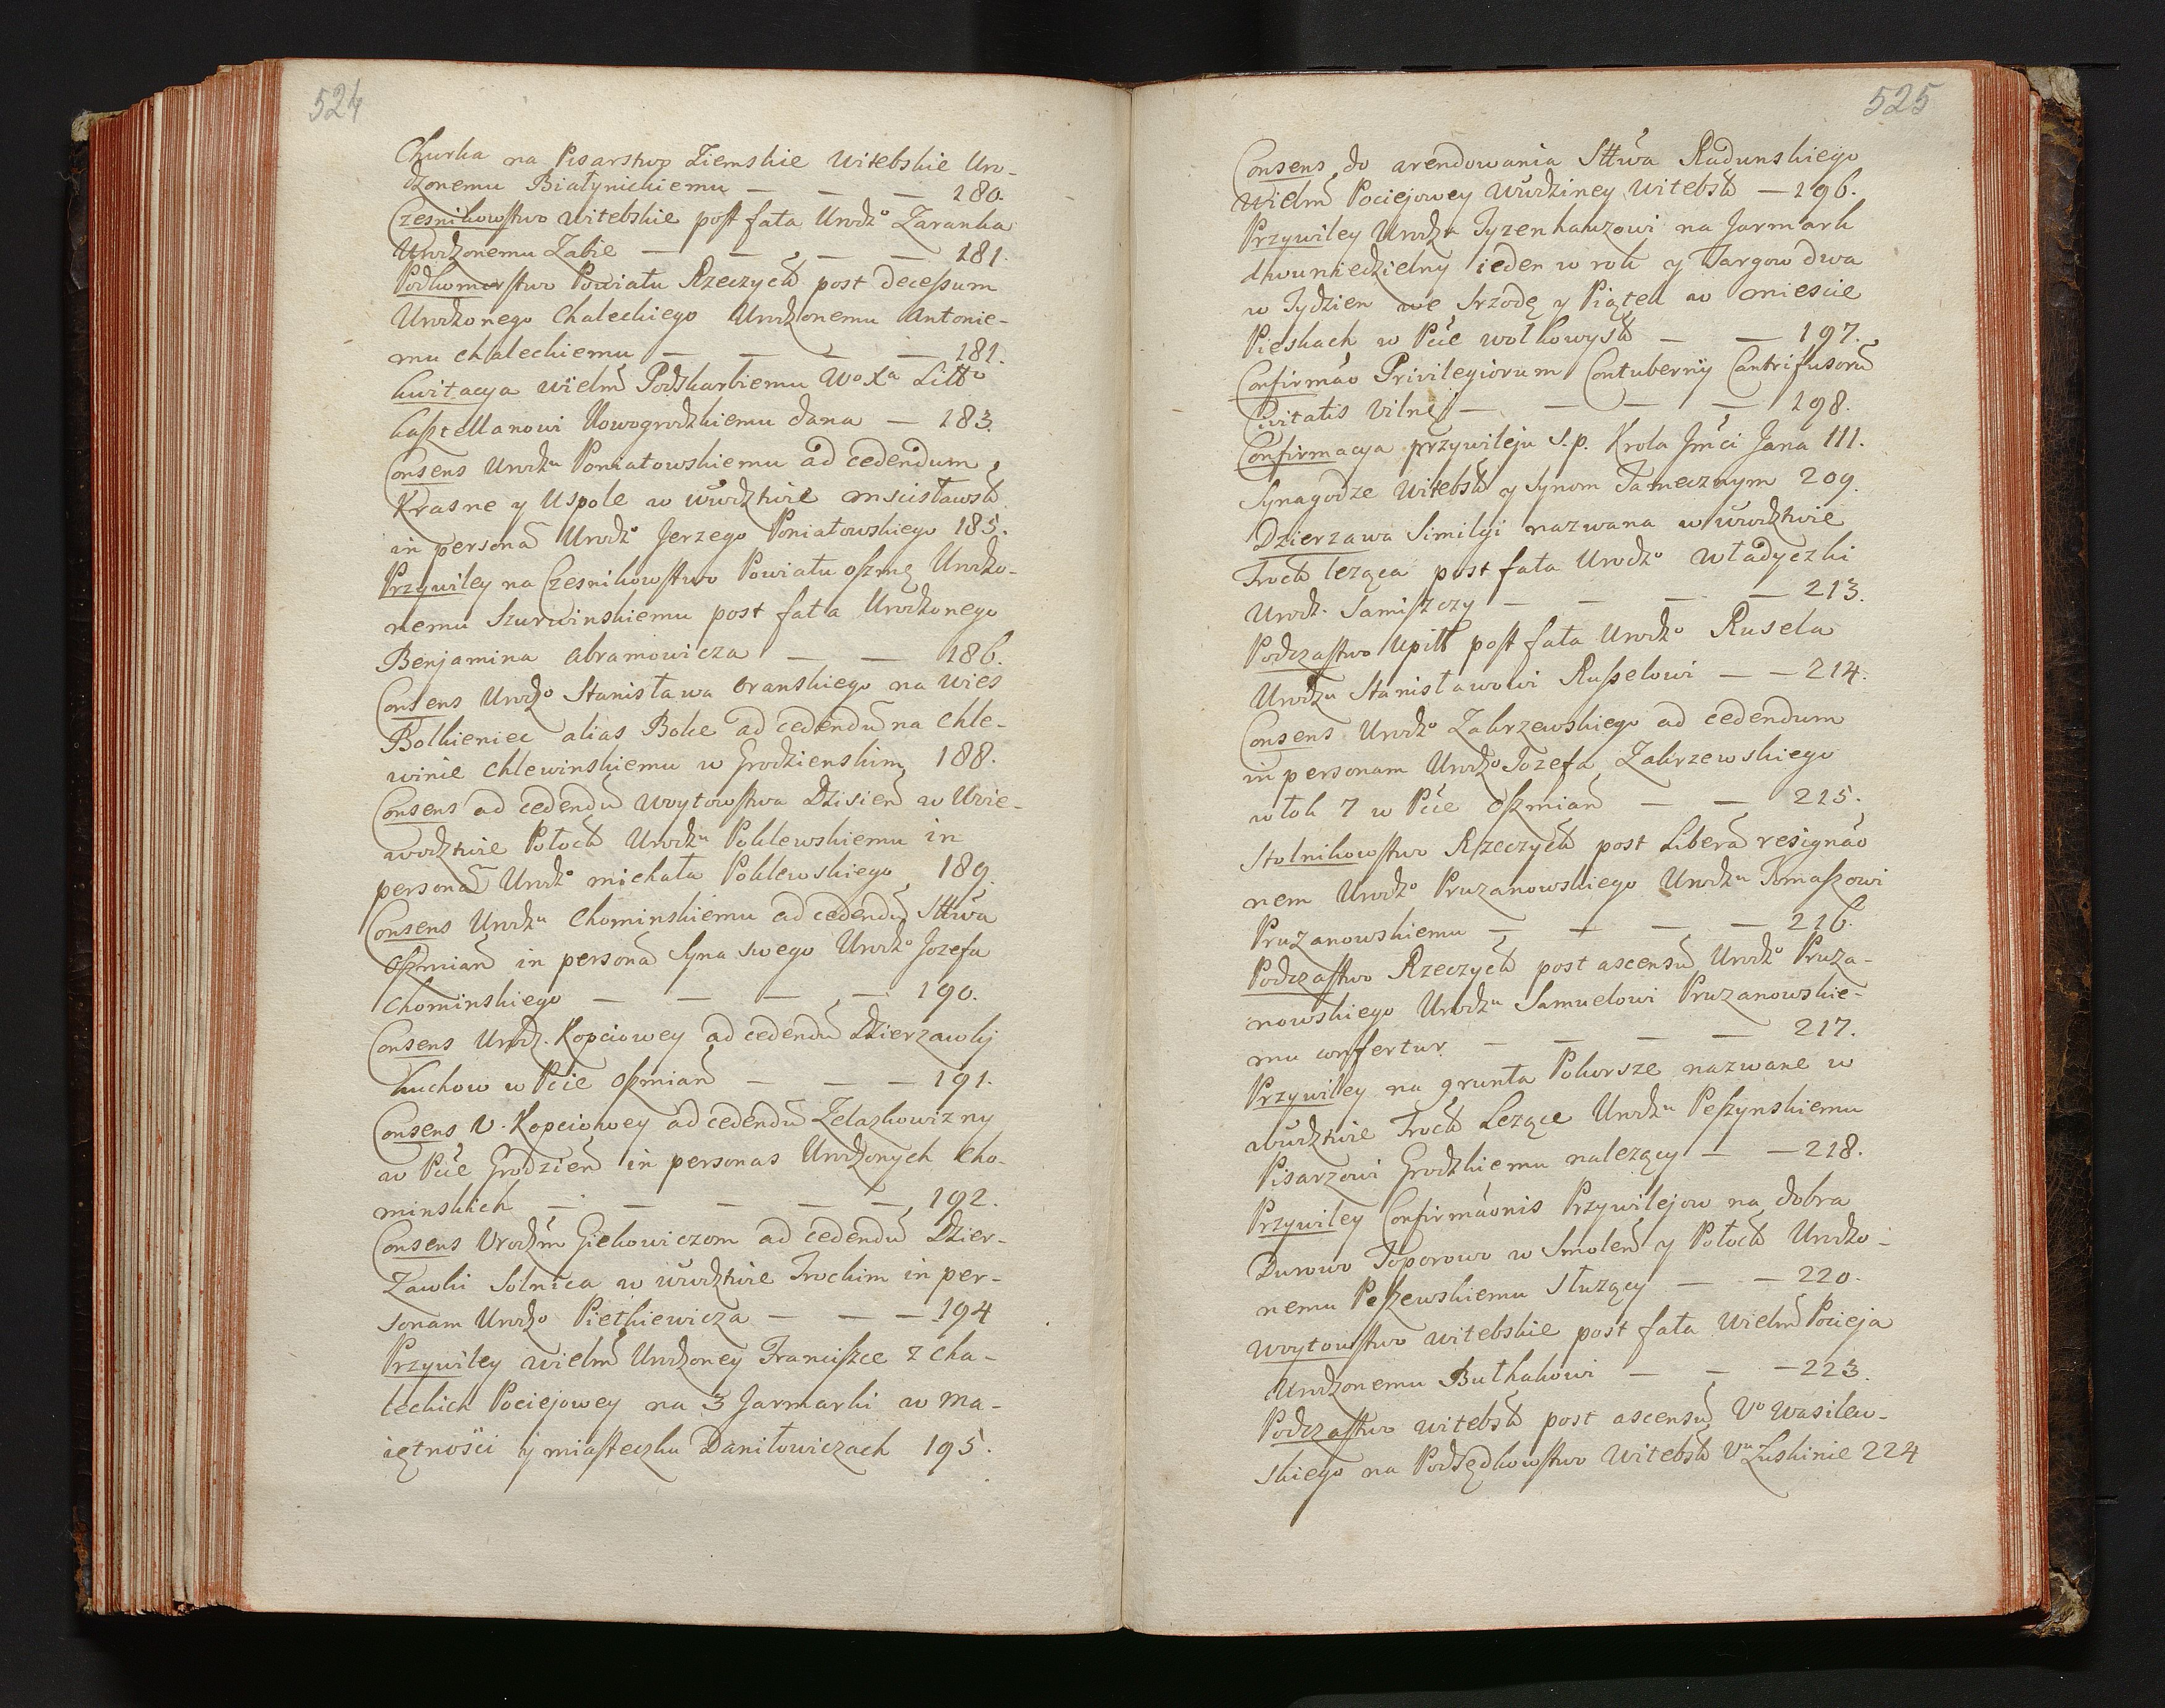 524
Churka na Pisarstwo Ziemskie Witebskie Uro-
dzonemu Białynickiemu — — — 280.
Czesnikowstwo witebskie post fata Urodzo Zaranka
Urodzonemu Zabie — — — — 181.
Podkomorstwo Powiatu Rzeczyck post decessum
Urodzonego Chaleckiego Urodzonemu Antonie-
mu Chaleckiemu — — — — 181.
Kwitacya wielm Podskarbiemu Wo Xa Litto
kasztellanowi Nowogrodzkiemu dana — 183.
Consens Urodzu Poniatowskiemu ad cedendum
Krasne y Uspole w wwdztwie mscisławsk
in persona Urodzo Jerzego Poniatowskiego 185.
Przywiley na Czesnikowstwo Powiatu oszmę Urodzo-
nemu Szurwinskiemu post fata Urodzonego
Benjamina Abramowicza — — 186.
Consens Urodzo Stanisława oranskiego na wies
Bolkieniec alias Boke ad cedendu na Chle-
winie Chlewinskiemu w Grodzienskim 188.
Consens ad cedendu Woytowstwa Dzisien w Woie-
wodztwie Połock Urodzu Poklewskiemu in
persona Urodzo michała Poklewskiego 189.
Consens Urodzu Chominskiemu ad cedendu Sttwa
Oszmian in persona Syna swego Urodzo Jozefa
Chominskiego — — — — 190.
Consens Urodz. Kopciowey ad cedendu Dzierzawky
Kuchow w Pcie Oszmian — — — 191.
Consens U. Kopciowey ad cedendu Zelazkowizny
w Pcie Grodzien in personas Urodzonych Cho-
minskich — — — — — 192.
Consens Urodzm Giekowiczom ad cedendu Dzier-
zawki Solnica w wwdztwie Trockim in per-
sonam Urodzo Pietkiewicza — — — 194
Przywiley wielm Urodzoney Franciszce z Cha-
leckich Pociejowey na 3 Jarmarki w Ma-
iętności y miasteczku Daniłowiczach 195.
525
Consens do arendowania Sttwa Radunskiego
Wielm Pociejowey Wwdziney Witebsk — 196.
Przywiley Urodzu Tyzenhauzowi na Jarmark
dwuniedzielny ieden w rok y Targow dwa
w Tydzien we Srzodę y Piątek w miescie
Pieskach w Pcie wołkowysk — — 197.
Confirmao Privilegiorum Contubernij Cantrifusoru
Civitatis Vilne — — — — 198.
Confirmacya przywileju S.p. Krola Jmci Jana III.
Synagodze Witebsk y Synom Tamecznym 209.
Dzierzawa Similgi nazwana w wwdztwie
Trock leząca post fata Urodzo władyczki
Urodz. Samiszczy — — — — 213.
Podczastwo Upitt post fata Urodzo Rusela
Urodzu Stanisławowi Russelowi — — 214.
Consens Urodzo Zakrzewskiego ad cedendum
in personam Urodzo Jozefa Zakrzewskiego
włok 7 w Pcie Oszmian — — 215.
Stolnikowstwo Rzeczyck post Libera resignao
nem Urodzo Pruzanowskiego Urodzu Tomaszowi
Pruzanowskiemu — — — — 216.
Podczastwo Rzeczyck post ascensu Urodzo Pruza-
nowskiego Urodzu Samuelowi Pruzanowskie-
mu confertur — — — — 217.
Przywiley na grunta Pokorsze nazwane w
wwdztwie Trock Lezące Urodzu Peszynskiemu
Pisarzowi Grodzkiemu nalezący — — 218.
Przywiley Confirmaonis Przywilejow na dobra
Durowo Toporowo w Smolen y Połock Urodzo-
nemu Peszewskiemu słuzący — — 220.
Woytowstwo witebskie post fata Wielm Pocieja
Urodzonemu Buthakowi — — — 223.
Podczastwo witebsk post ascensu Vo Wasilew-
skiego na Podsędkowstwo Witebsk Vu Luskinie 224